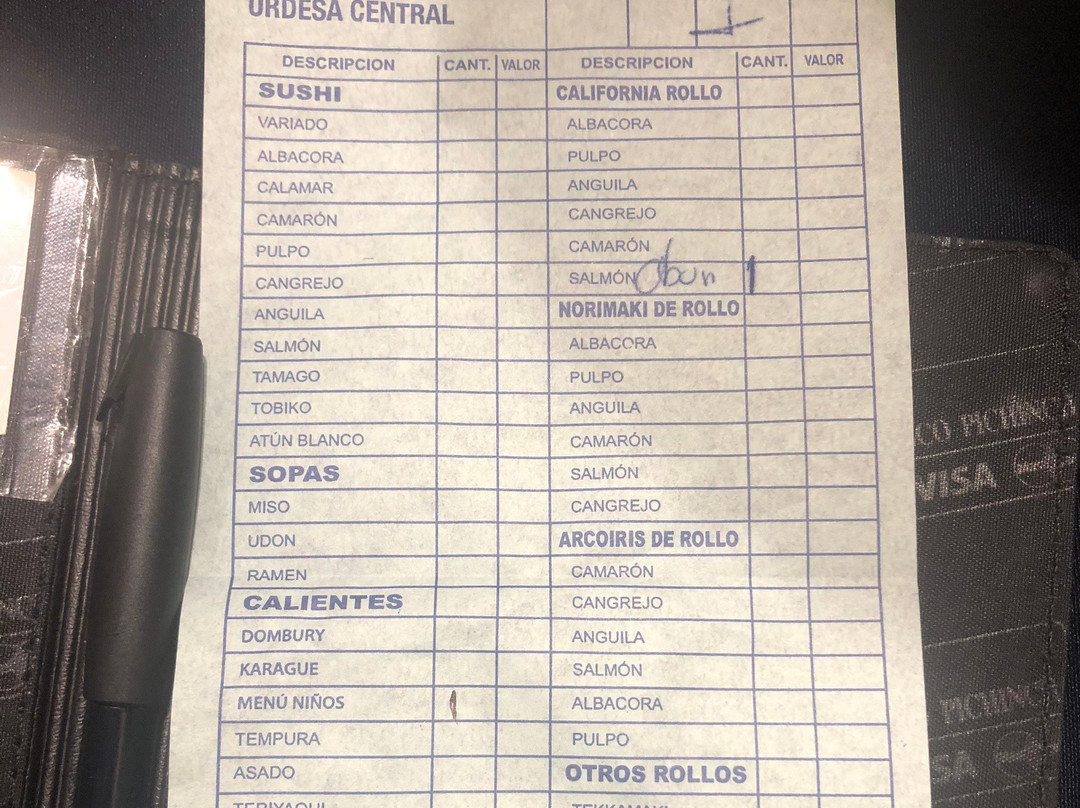 URDESA CENTRAL
1
DESCRIPCION CANT. VALOR
SUSHI
VARIADO
ALBACORA
CALAMAR
CAMARÓN
PULPO
CANGREJO
ANGUILA
SALMÓN
TAMAGO
TOBIKO
ATÚN BLANCO
SOPAS
MISO
UDON
RAMEN
CALIENTES
DOMBURY
KARAGUE
MENÚ NIÑOS 1
TEMPURA
ASADO
TERIYAQUI
DESCRIPCION CANT. VALOR
CALIFORNIA ROLLO
ALBACORA
PULPO
ANGUILA
CANGREJO
CAMARÓN
SALMÓN 1
NORIMAKI DE ROLLO
ALBACORA
PULPO
ANGUILA
CAMARÓN
SALMÓN
CANGREJO
ARCOIRIS DE ROLLO
CAMARÓN
CANGREJO
ANGUILA
SALMÓN
ALBACORA
PULPO
OTROS ROLLOS
TEKKAMAKI
VISA